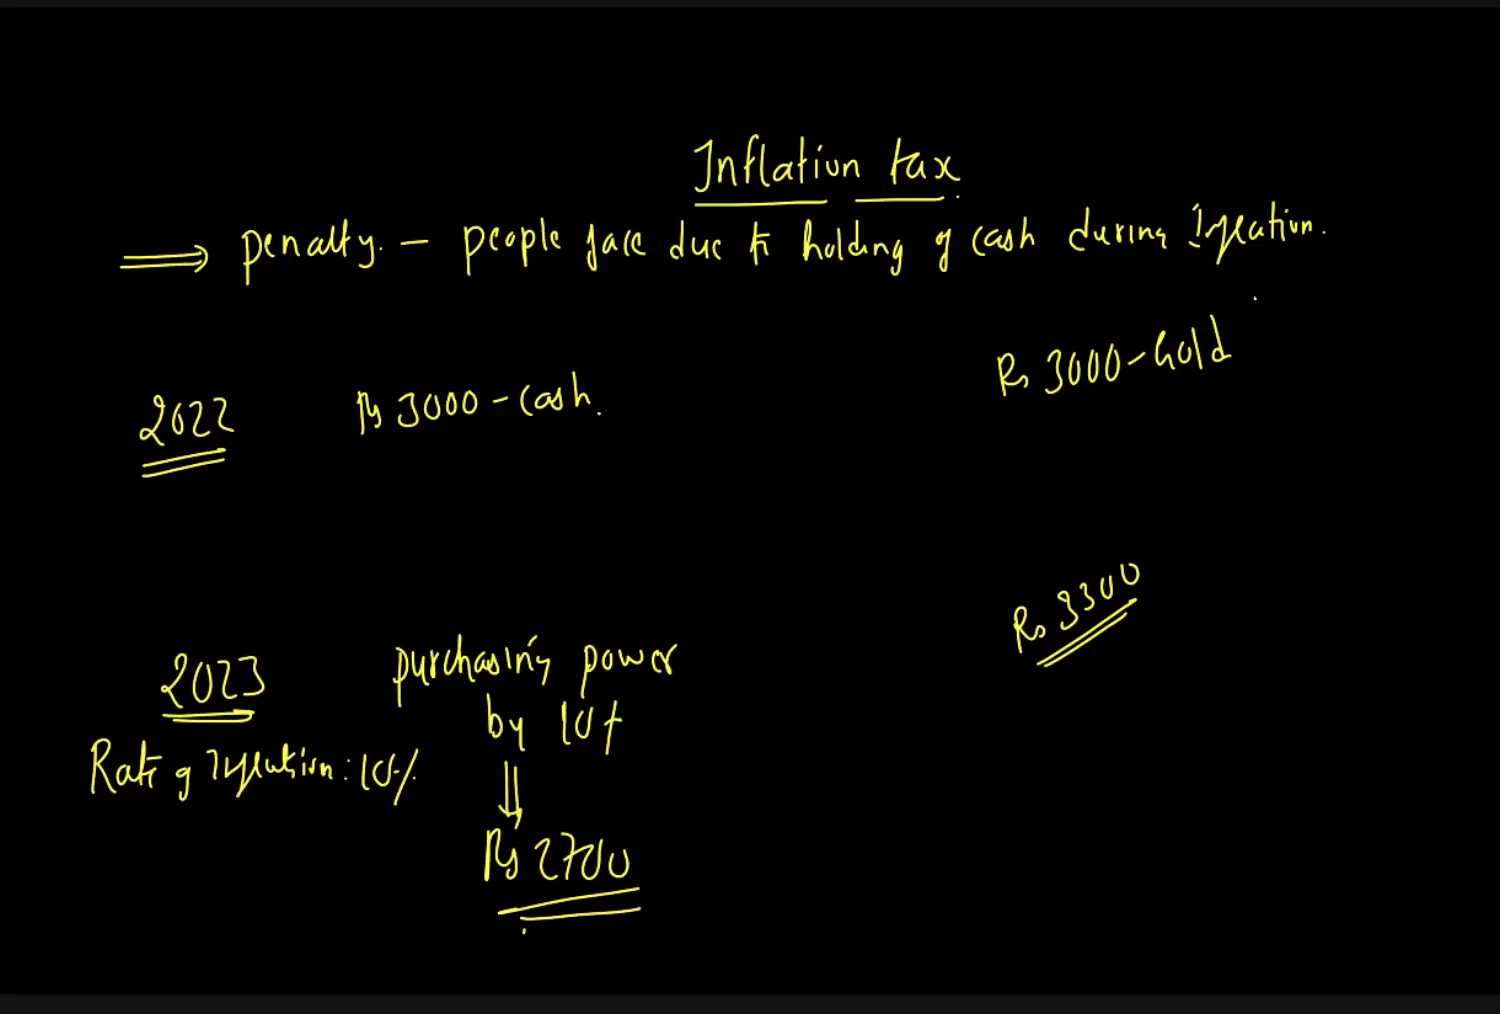 Inflation tax
⟹ penalty. – people face due to holding of cash during Inflation.
Rs 3000 – Gold
2022 Rs 3000 – cash.
Rs 3300
2023 purchasing power
by 10%
Rate of Inflation: 10%
⇓
Rs 2700